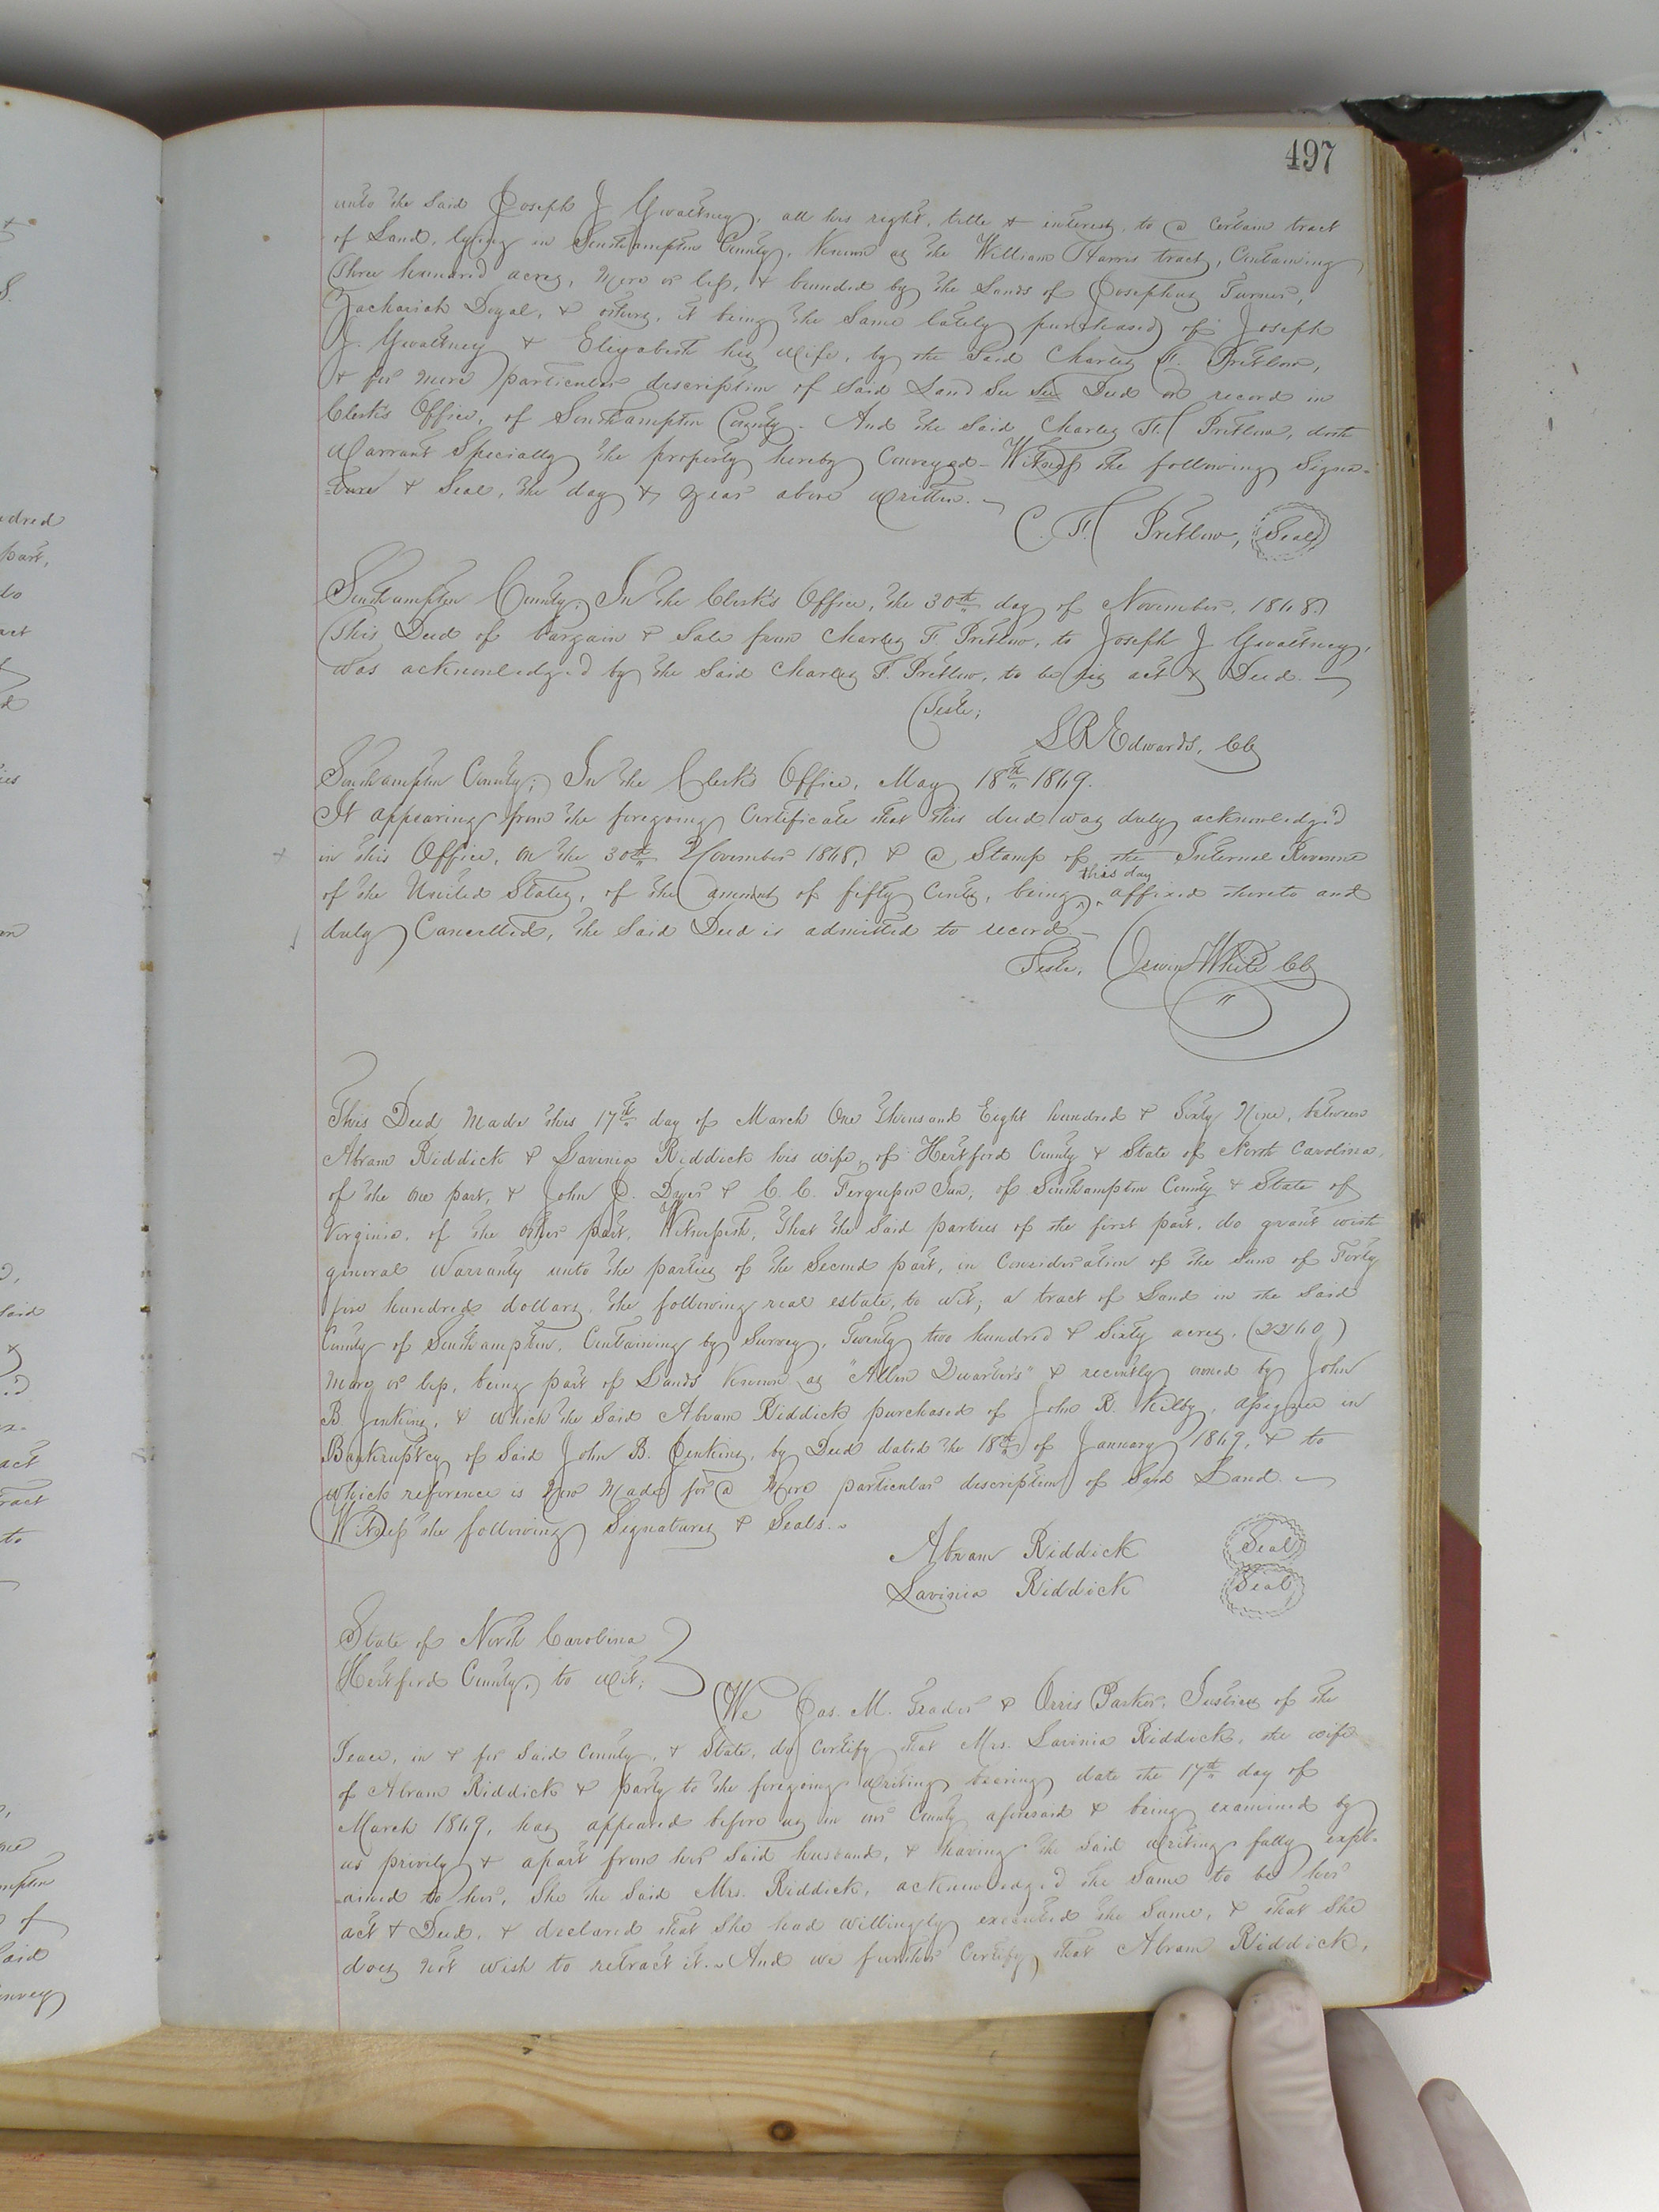 497
unto the said Joseph J Gwaltney, all his right, title & interest, to a certain tract
of Land, lying in Southampton County, known as the William Harris tract, Containing
Three hundred acres, more or less, & bounded by the Lands of Josephus Turner,
Zachariah Doyal, & others, it being the same lately purchased of Joseph
J. Gwaltney & Elizabeth his wife, by the said Charles F. Pretlow,
& for more particular description of said Land see see Deed on record in
Clerk's Office, of Southampton County. And the said Charles F. Pretlow, doth
Warrant Specially the property hereby Conveyed - Witness the following Signa-
-ture & Seal, the day & year above written. -
C. F. Pretlow, Seal
Southampton County, In the Clerk's Office, the 30th day of November, 1868.
This Deed of bargain & Sale from Charles F. Pretlow, to Joseph J Gwaltney,
was acknowledged by the said Charles F. Pretlow, to be his act & Deed. -
Teste;
L R Edwards, Clk
Southampton County; In the Clerk's Office, May 18th 1869.
It appearing from the foregoing Certificate that this deed was duly acknowledg'd
in this Office, on the 30th November 1868, & a Stamp of the Internal Revenue
this day
of the United States, of the amount of fifty Cents, being affixed thereto and
duly Cancelled, the Said Deed is admitted to record. -
Teste, White Clk
This Deed made this 17th day of March One thousand Eight hundred & Sixty Nine, between
Abram Riddick & Lavinia Riddick his wife, of Hertford County & State of North Carolina,
of the one part, & John D. & C. C. Ferguson Jun, of Southampton County & State of
Virginia, of the other part, Witnesseth, That the Said parties of the first part, do grant with
general Warranty unto the parties of the Second part, in Consideration of the Sum of Forty
five hundred dollars, the following real estate, to wit; a tract of Land in the Said
County of Southampton, Containing by Survey, Twenty two hundred & Sixty acres, (2260)
more or less, being part of Lands known as "Allen Quarter's" & recently owned by John
B. Jenkins, & which the Said Abram Riddick purchased of John R. Kilby, assignee in
Bankruptcy of Said John B. Jenkins, by Deed dated the 18th of January 1869, & to
which reference is now made for a more particular description of Said Land. -
Witness the following Signatures & Seals. -
Abram Riddick Seal
Lavinia Riddick Seal
State of North Carolina
Hertford County, to wit;
We Jas. M. Trader & Orris Parker, Justices of the
Peace, in & for Said County, & State, do Certify that Mrs. Lavinia Riddick, the wife
of Abram Riddick & party to the foregoing writing bearing date the 17th day of
March 1869, has appeared before us in our County aforesaid & being examined by
us privily & apart from her Said husband, & having the Said writing fully expl-
-ained to her, She the Said Mrs. Riddick, acknowledged the Same to be her
act & Deed, & declared that She had willingly executed the Same, & that She
does not wish to retract it. - And we further Certify, that Abram Riddick,